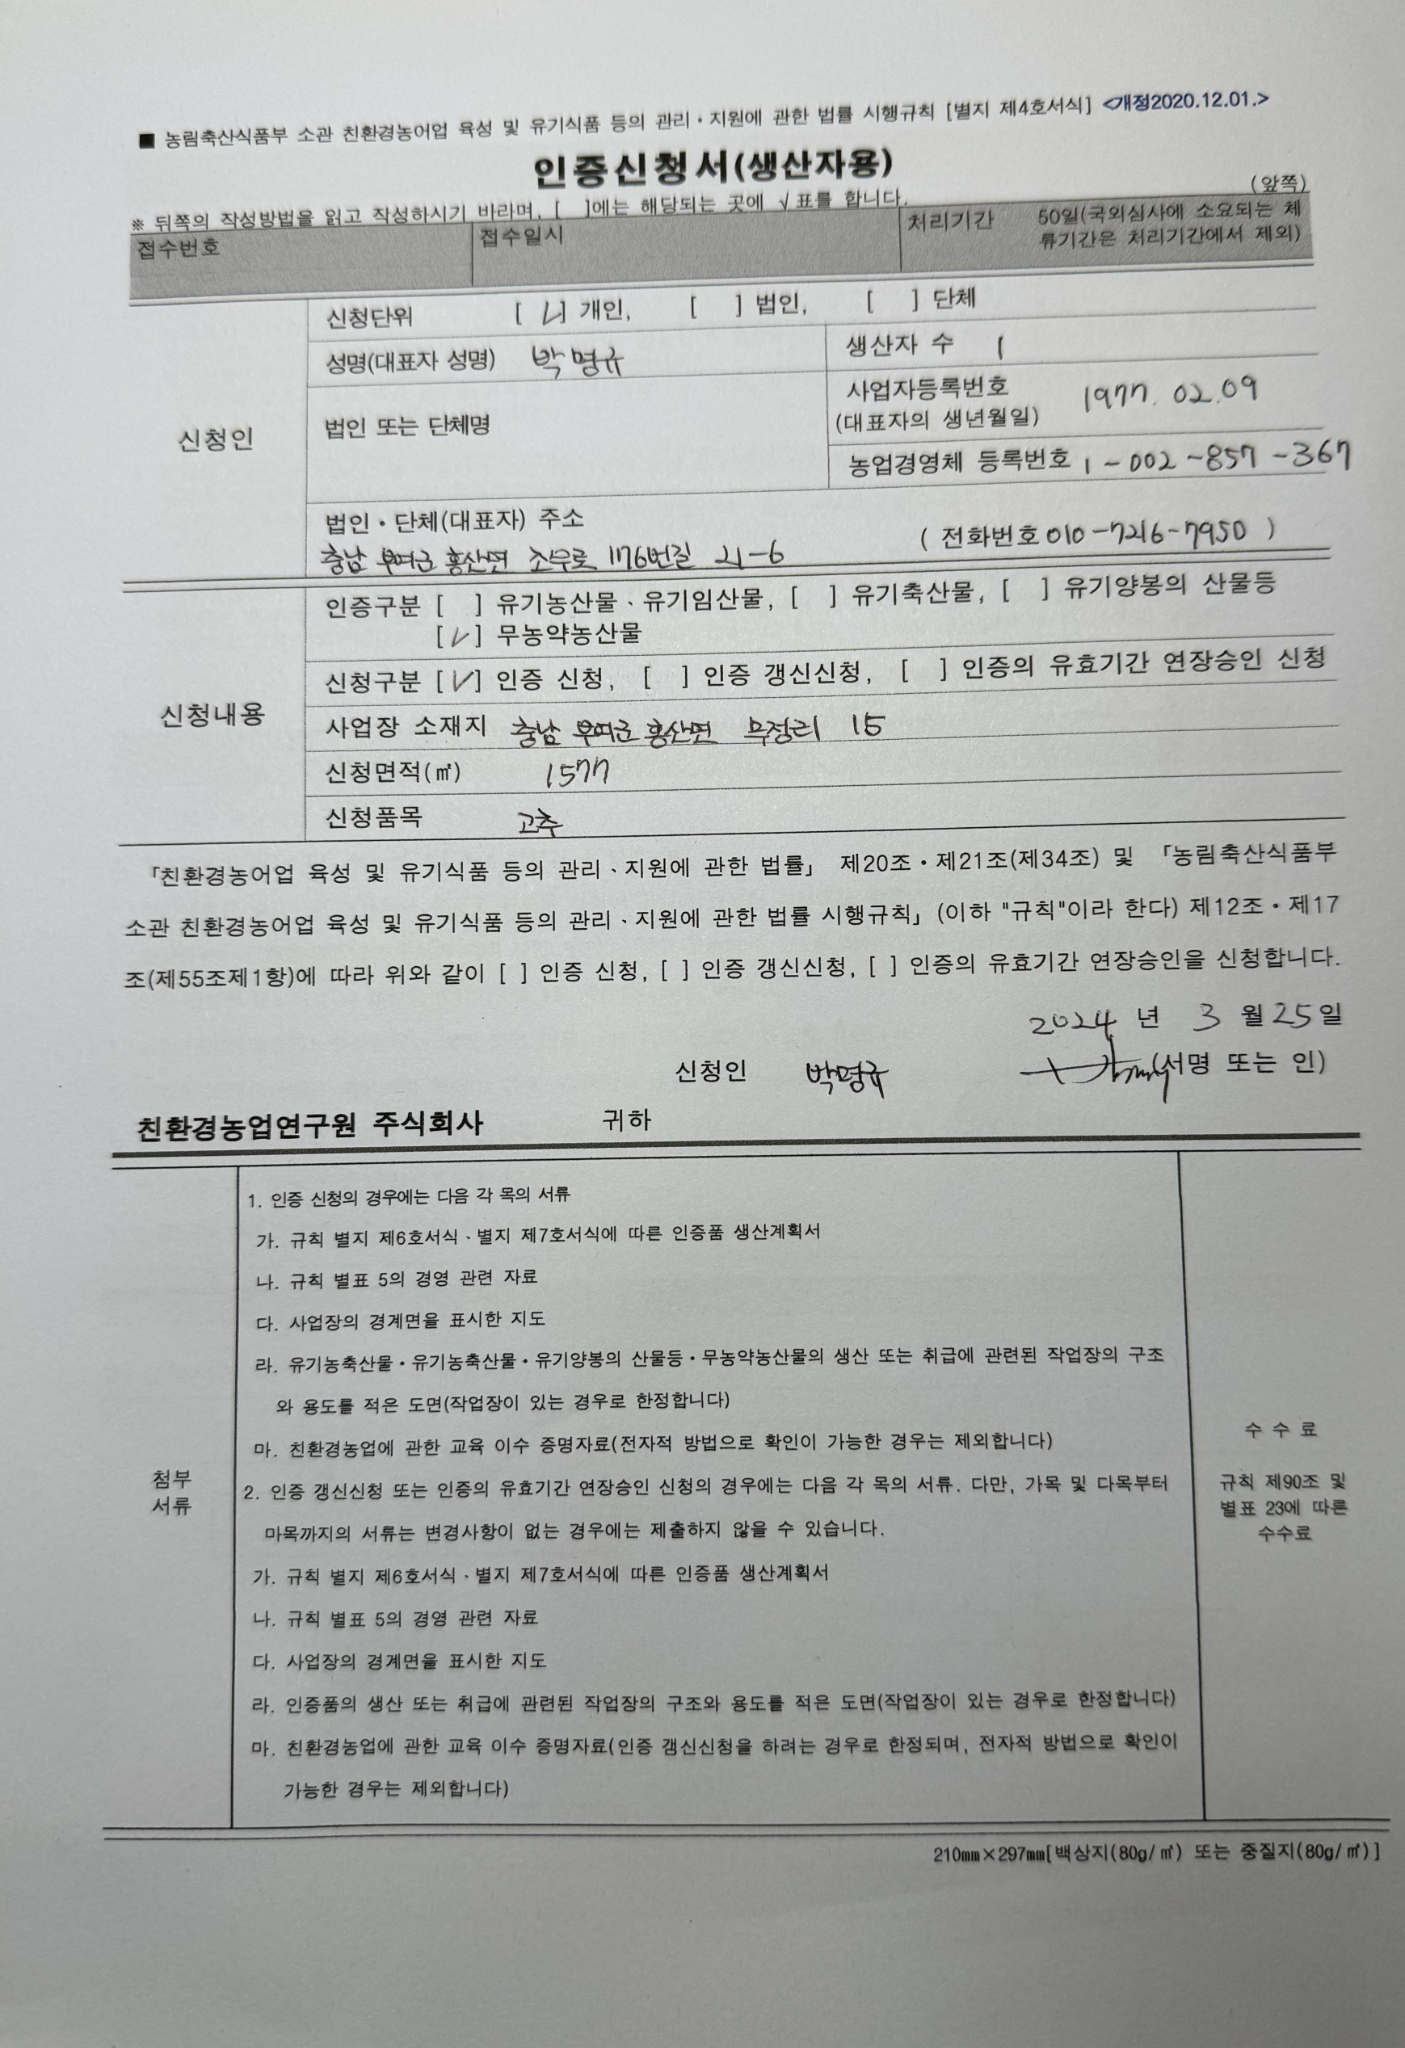 ■ 농림축산식품부 소관 친환경농어업 육성 및 유기식품 등의 관리ㆍ지원에 관한 법률 시행규칙 [별지 제4호서식] <개정2020.12.01.>
인증신청서(생산자용)
(앞쪽)
※ 뒤쪽의 작성방법을 읽고 작성하시기 바라며, [ ]에는 해당되는 곳에 √표를 합니다.
접수번호 접수일시 처리기간 50일(국외심사에 소요되는 체
류기간은 처리기간에서 제외)
신청인
신청단위 [√] 개인, [ ] 법인, [ ] 단체
성명(대표자 성명) 박명규 생산자 수 1
법인 또는 단체명
사업자등록번호
(대표자의 생년월일) 1977.02.09
농업경영체 등록번호 1-002-857-367
법인ㆍ단체(대표자) 주소
충남 부여군 홍산면 조무로 176번길 21-6 (전화번호 010-7216-7950)
신청내용
인증구분 [ ] 유기농산물ㆍ유기임산물, [ ] 유기축산물, [ ] 유기양봉의 산물등
[√] 무농약농산물
신청구분 [√] 인증 신청, [ ] 인증 갱신신청, [ ] 인증의 유효기간 연장승인 신청
사업장 소재지 충남 부여군 홍산면 무정리 15
신청면적(㎡) 1577
신청품목 고추
「친환경농어업 육성 및 유기식품 등의 관리ㆍ지원에 관한 법률」 제20조ㆍ제21조(제34조) 및 「농림축산식품부
소관 친환경농어업 육성 및 유기식품 등의 관리ㆍ지원에 관한 법률 시행규칙」(이하 "규칙"이라 한다) 제12조ㆍ제17
조(제55조제1항)에 따라 위와 같이 [ ] 인증 신청, [ ] 인증 갱신신청, [ ] 인증의 유효기간 연장승인을 신청합니다.
2024 년 3 월 25 일
신청인 박명규 (서명 또는 인)
친환경농업연구원 주식회사 귀하
첨부
서류
1. 인증 신청의 경우에는 다음 각 목의 서류
가. 규칙 별지 제6호서식ㆍ별지 제7호서식에 따른 인증품 생산계획서
나. 규칙 별표 5의 경영 관련 자료
다. 사업장의 경계면을 표시한 지도
라. 유기농축산물ㆍ유기농축산물ㆍ유기양봉의 산물등ㆍ무농약농산물의 생산 또는 취급에 관련된 작업장의 구조
와 용도를 적은 도면(작업장이 있는 경우로 한정합니다)
마. 친환경농업에 관한 교육 이수 증명자료(전자적 방법으로 확인이 가능한 경우는 제외합니다)
2. 인증 갱신신청 또는 인증의 유효기간 연장승인 신청의 경우에는 다음 각 목의 서류. 다만, 가목 및 다목부터
마목까지의 서류는 변경사항이 없는 경우에는 제출하지 않을 수 있습니다.
가. 규칙 별지 제6호서식ㆍ별지 제7호서식에 따른 인증품 생산계획서
나. 규칙 별표 5의 경영 관련 자료
다. 사업장의 경계면을 표시한 지도
라. 인증품의 생산 또는 취급에 관련된 작업장의 구조와 용도를 적은 도면(작업장이 있는 경우로 한정합니다)
마. 친환경농업에 관한 교육 이수 증명자료(인증 갱신신청을 하려는 경우로 한정되며, 전자적 방법으로 확인이
가능한 경우는 제외합니다)
수 수 료
규칙 제90조 및
별표 23에 따른
수수료
210㎜×297㎜[백상지(80g/㎡) 또는 중질지(80g/㎡)]